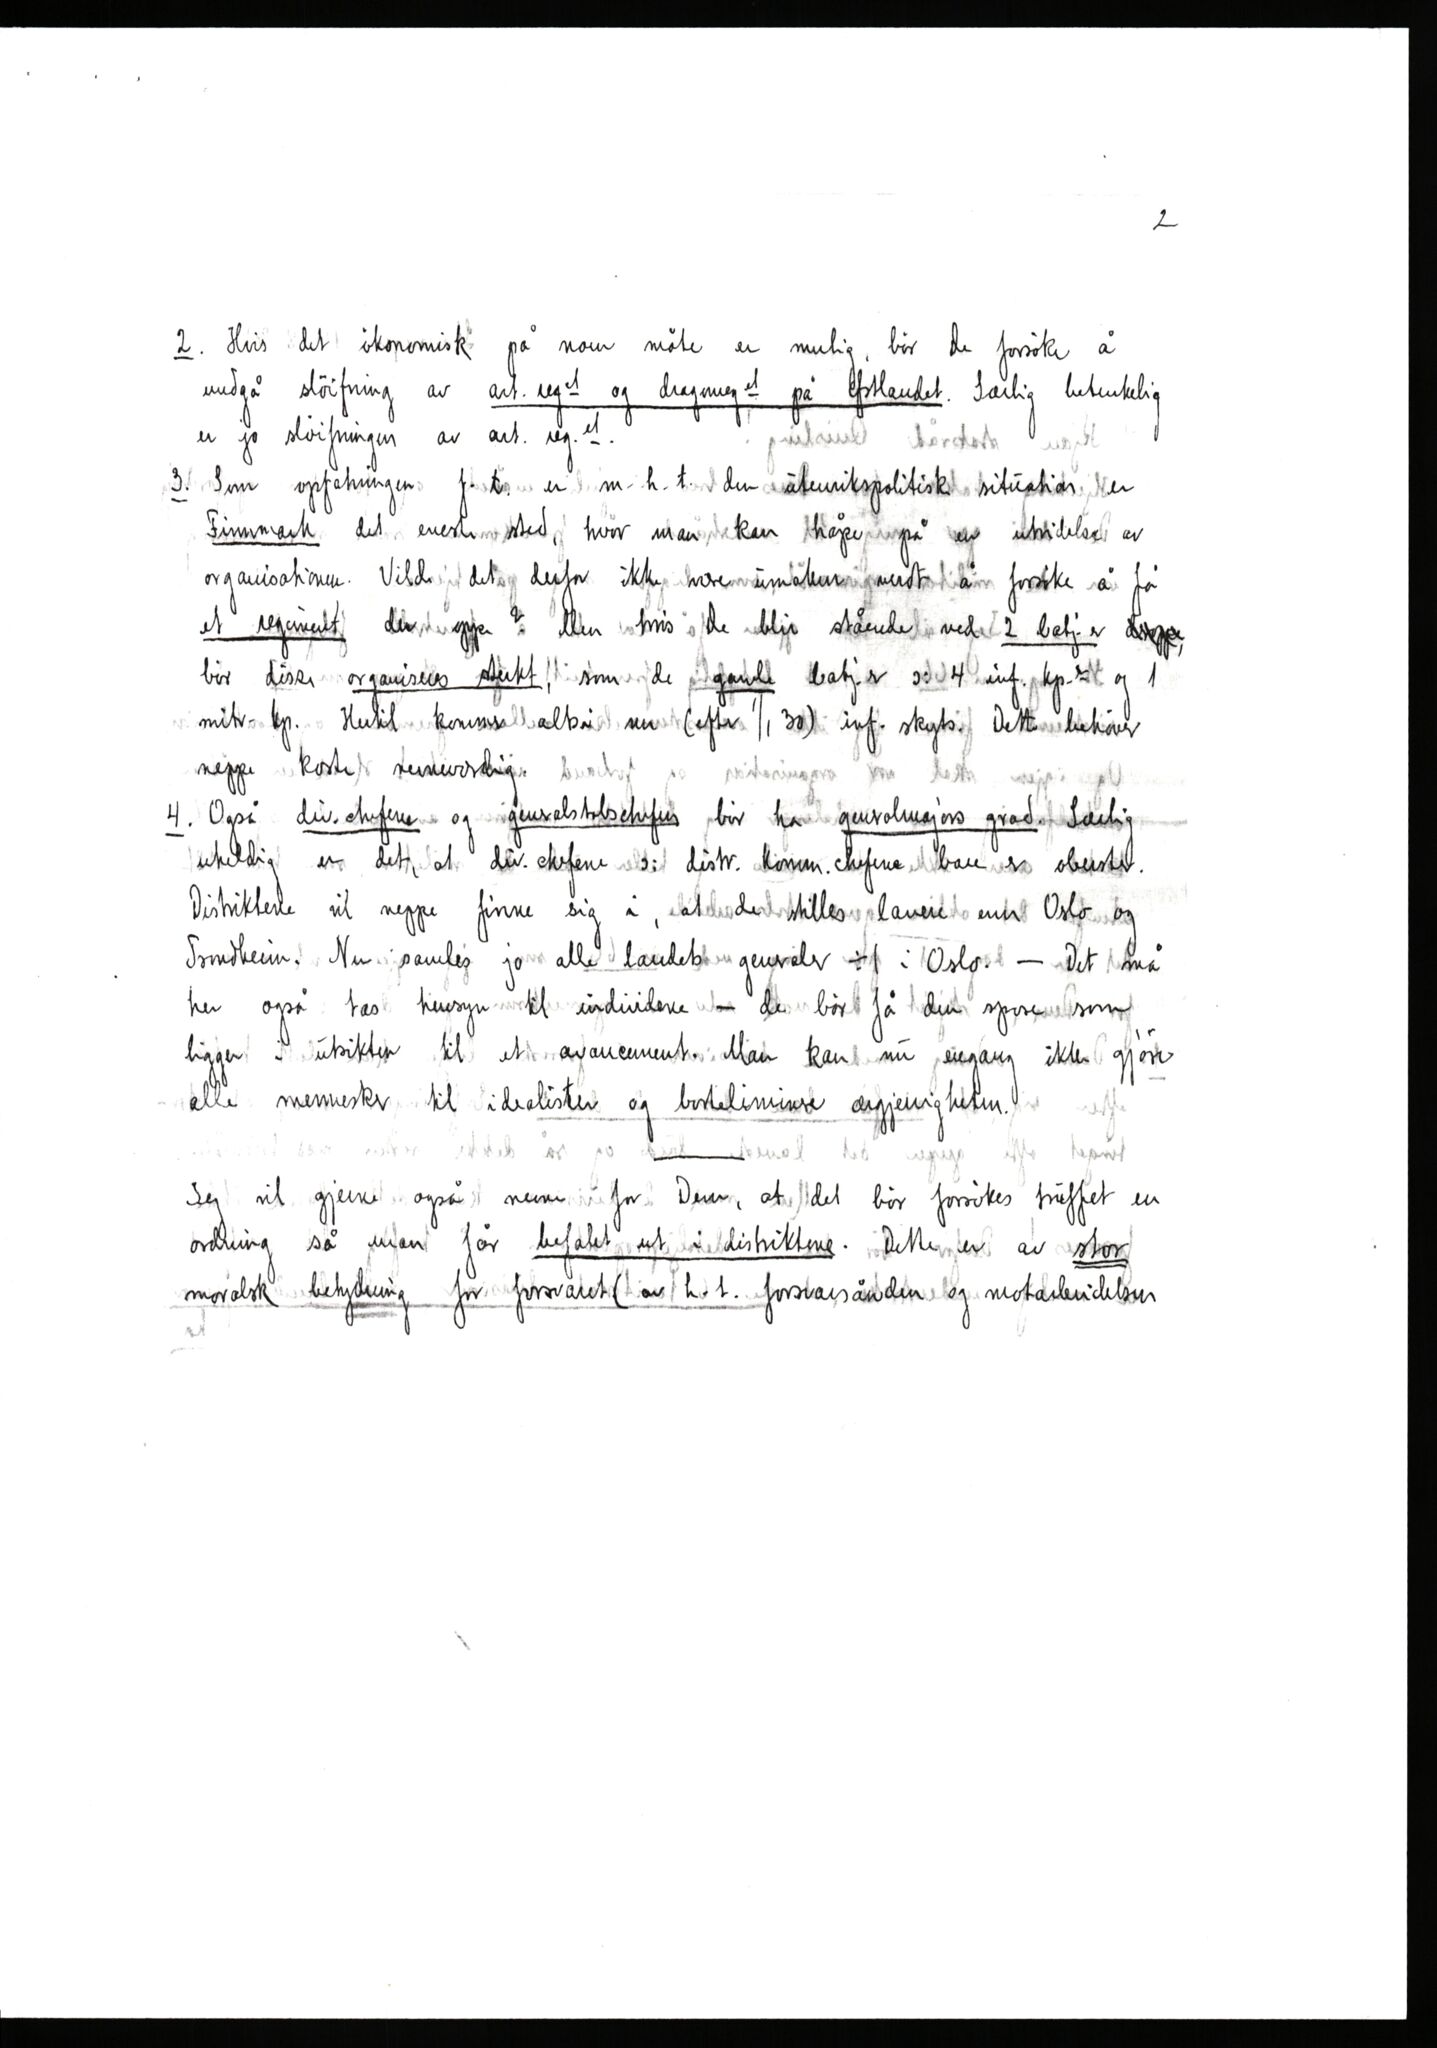 2
2. Hvis det ökonomisk på noen måte er mulig, bör De forsöke å
undgå slöifning av art. reg.et og dragonreg.et på Östlandet. Særlig betenkelig
er jo slöifningen av art. reg.et.
3. Som opfatningen f. t. er m. h. t. den utenrikspolitisk situation er
Finnmark det eneste sted, hvor man kan håpe på en utvidelse av
organisationen. Vilde det derfor ikke være umaken verdt å forsöke å få
et regiment der oppe? Men hvis De blir stående ved 2 batj.er deroppe,
bör disse organiseres sterkt, som de gamle batj.er ɔ: 4 inf. kp.r og 1
mitr. kp. Hertil kommer altså nu (efter 1/1 30) inf. skyts. Dette behöver
neppe koste nevneverdig.
4. Også div. chefene og generalstabschefen bör ha generalmajors grad. Særlig
uheldig er det, at div. chefene ɔ: distr. komm. chefene bare er oberster.
Distriktene vil neppe finne sig i, at de stilles lavere enn Oslo og
Trondheim. Nu samles jo alle landets generaler ÷ 1 i Oslo. — Det må
her også tas hensyn til individene — de bör få den spore som
ligger i utsikten til et avancement. Man kan nu engang ikke gjöre
alle mennesker til idealister og borteliminere ærgjerrigheten.
Jeg vil gjerne også nevne for Dem, at det bör forsökes truffet en
ordning så man får befalet ut i distriktene. Dette er av stor
moralsk betydning for forsvaret (av h. t. forsvarsånden og motarbeidelsen